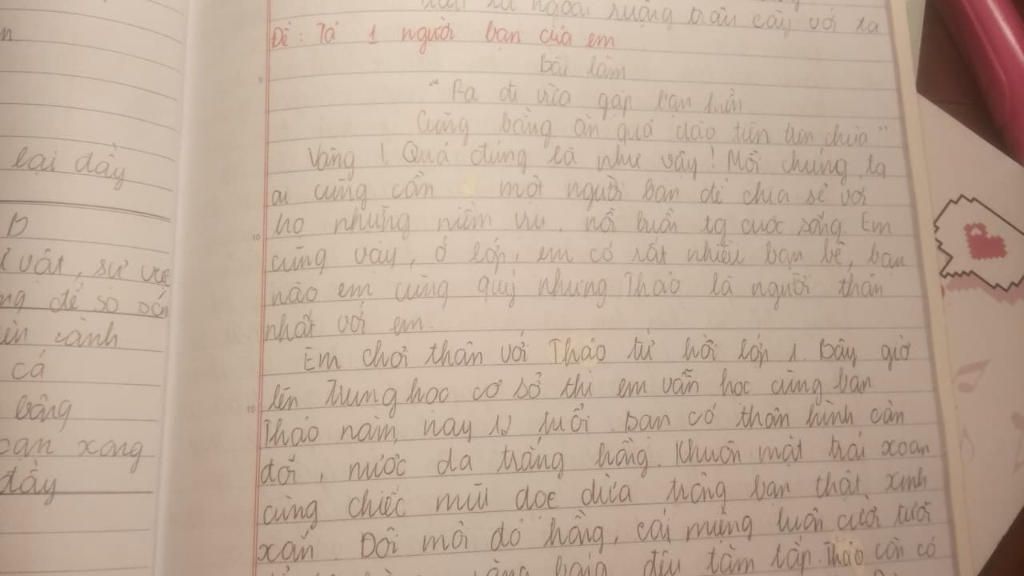 ngoài ruộng trần cây với ta
Đề : Tả 1 người bạn của em
bài làm
"Ra đi vừa gặp bạn hiền
Cũng bằng ăn quả đào tiên trên chùa"
Vâng ! Quả đúng là như vậy ! Mỗi chúng ta
ai cũng cần một người bạn để chia sẻ với
họ những niềm vui, nỗi buồn tg cuộc sống. Em
cũng vậy, ở lớp, em có rất nhiều bạn bè, bạn
nào em cũng quý nhưng Thảo là người thân
nhất với em.
Em chơi thân với Thảo từ hồi lớp 1. Bây giờ
lên trung học cơ sở thì em vẫn học cùng bạn
Thảo năm nay 12 tuổi. bạn có thân hình cân
đối, nước da trắng hồng. Khuôn mặt trái xoan
cùng chiếc mũi dọc dừa trông bạn thật xinh
xắn. Đôi môi đỏ hồng, cái miệng luôn cười tươi
răng đều tăm tắp. Thảo còn có
n
lại đầy
vật, sự vc
ng để so sán
cảnh
cá
bông
bạn xong
đầy